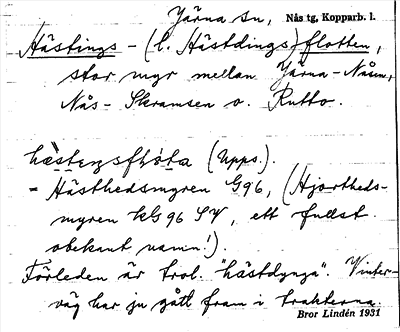 Järna sn, Nås tg, Kopparb. l.
Hästings - (l. Hästdings)flotten,
stor myr mellan Järna-Nåsm,
Nås - Skramsen o. Rutbo.
(Upps.).
= Hästhedsmyren G96, (Hjortheds-
myren kG 96 SV, ett fullst.
obekant namn!).
Förleden är trol. "hästdynga". Vinter-
väg har ju gått fram i trakterna.
Bror Lindén 1931